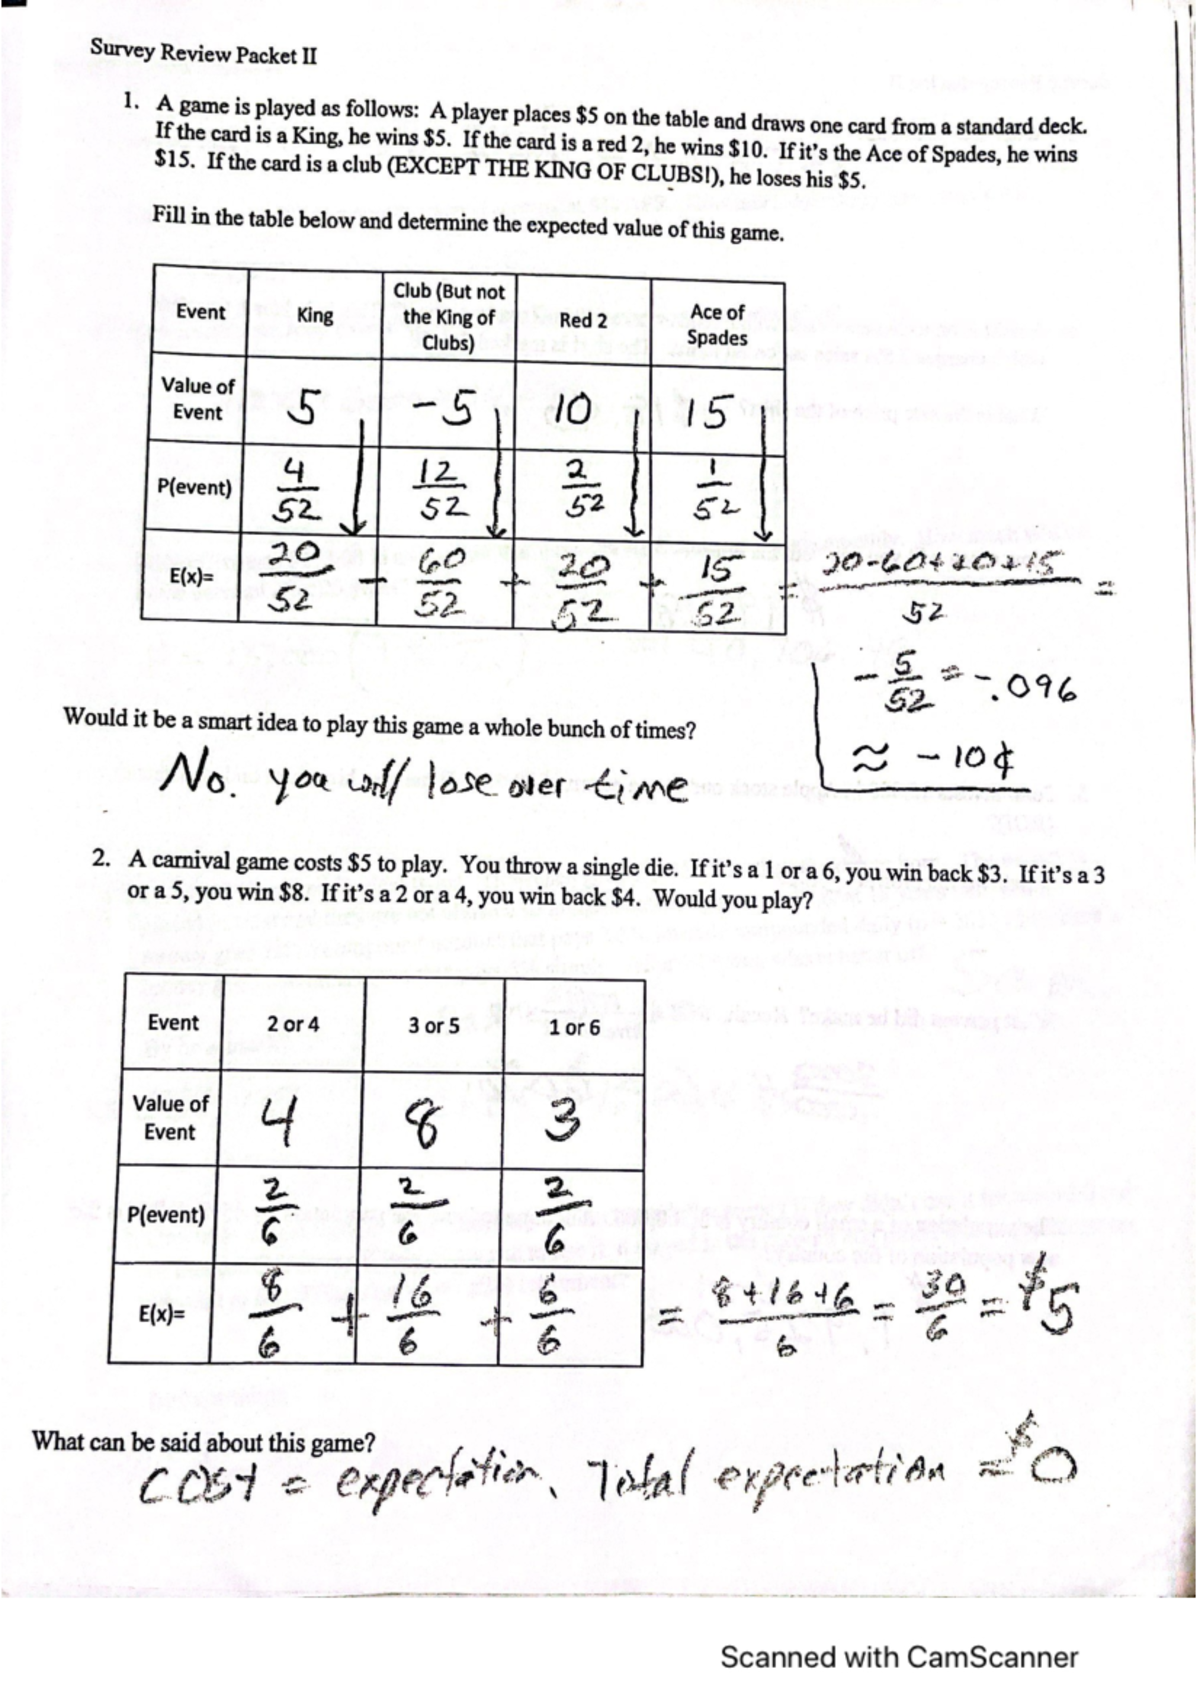 Survey Review Packet II
1. A game is played as follows: A player places $5 on the table and draws one card from a standard deck.
If the card is a King, he wins $5. If the card is a red 2, he wins $10. If it's the Ace of Spades, he wins
$15. If the card is a club (EXCEPT THE KING OF CLUBS!), he loses his $5.
Fill in the table below and determine the expected value of this game.
Event King Club (But not the King of Clubs) Red 2 Ace of Spades
Value of Event 5 -5 10 15
P(event) 4/52 12/52 2/52 1/52
E(x)= 20/52 - 60/52 + 20/52 + 15/52 = 20-60+20+15/52 =
-5/52 = -.096
≈ -10¢
Would it be a smart idea to play this game a whole bunch of times?
No. you will lose over time
2. A carnival game costs $5 to play. You throw a single die. If it's a 1 or a 6, you win back $3. If it's a 3
or a 5, you win $8. If it's a 2 or a 4, you win back $4. Would you play?
Event 2 or 4 3 or 5 1 or 6
Value of Event 4 8 3
P(event) 2/6 2/6 2/6
E(x)= 8/6 + 16/6 + 6/6 = 8+16+6/6 = 30/6 = $5
What can be said about this game?
COST = expectation. Total expectation = $0
Scanned with CamScanner